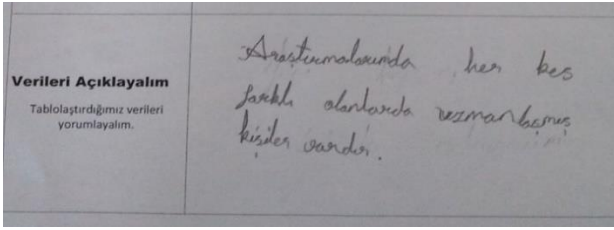 Verileri Açıklayalım
Tablolaştırdığımız verileri
yorumlayalım.
Araştırmalarımda her kes
farklı alanlarda uzmanlaşmış
kişiler vardır.